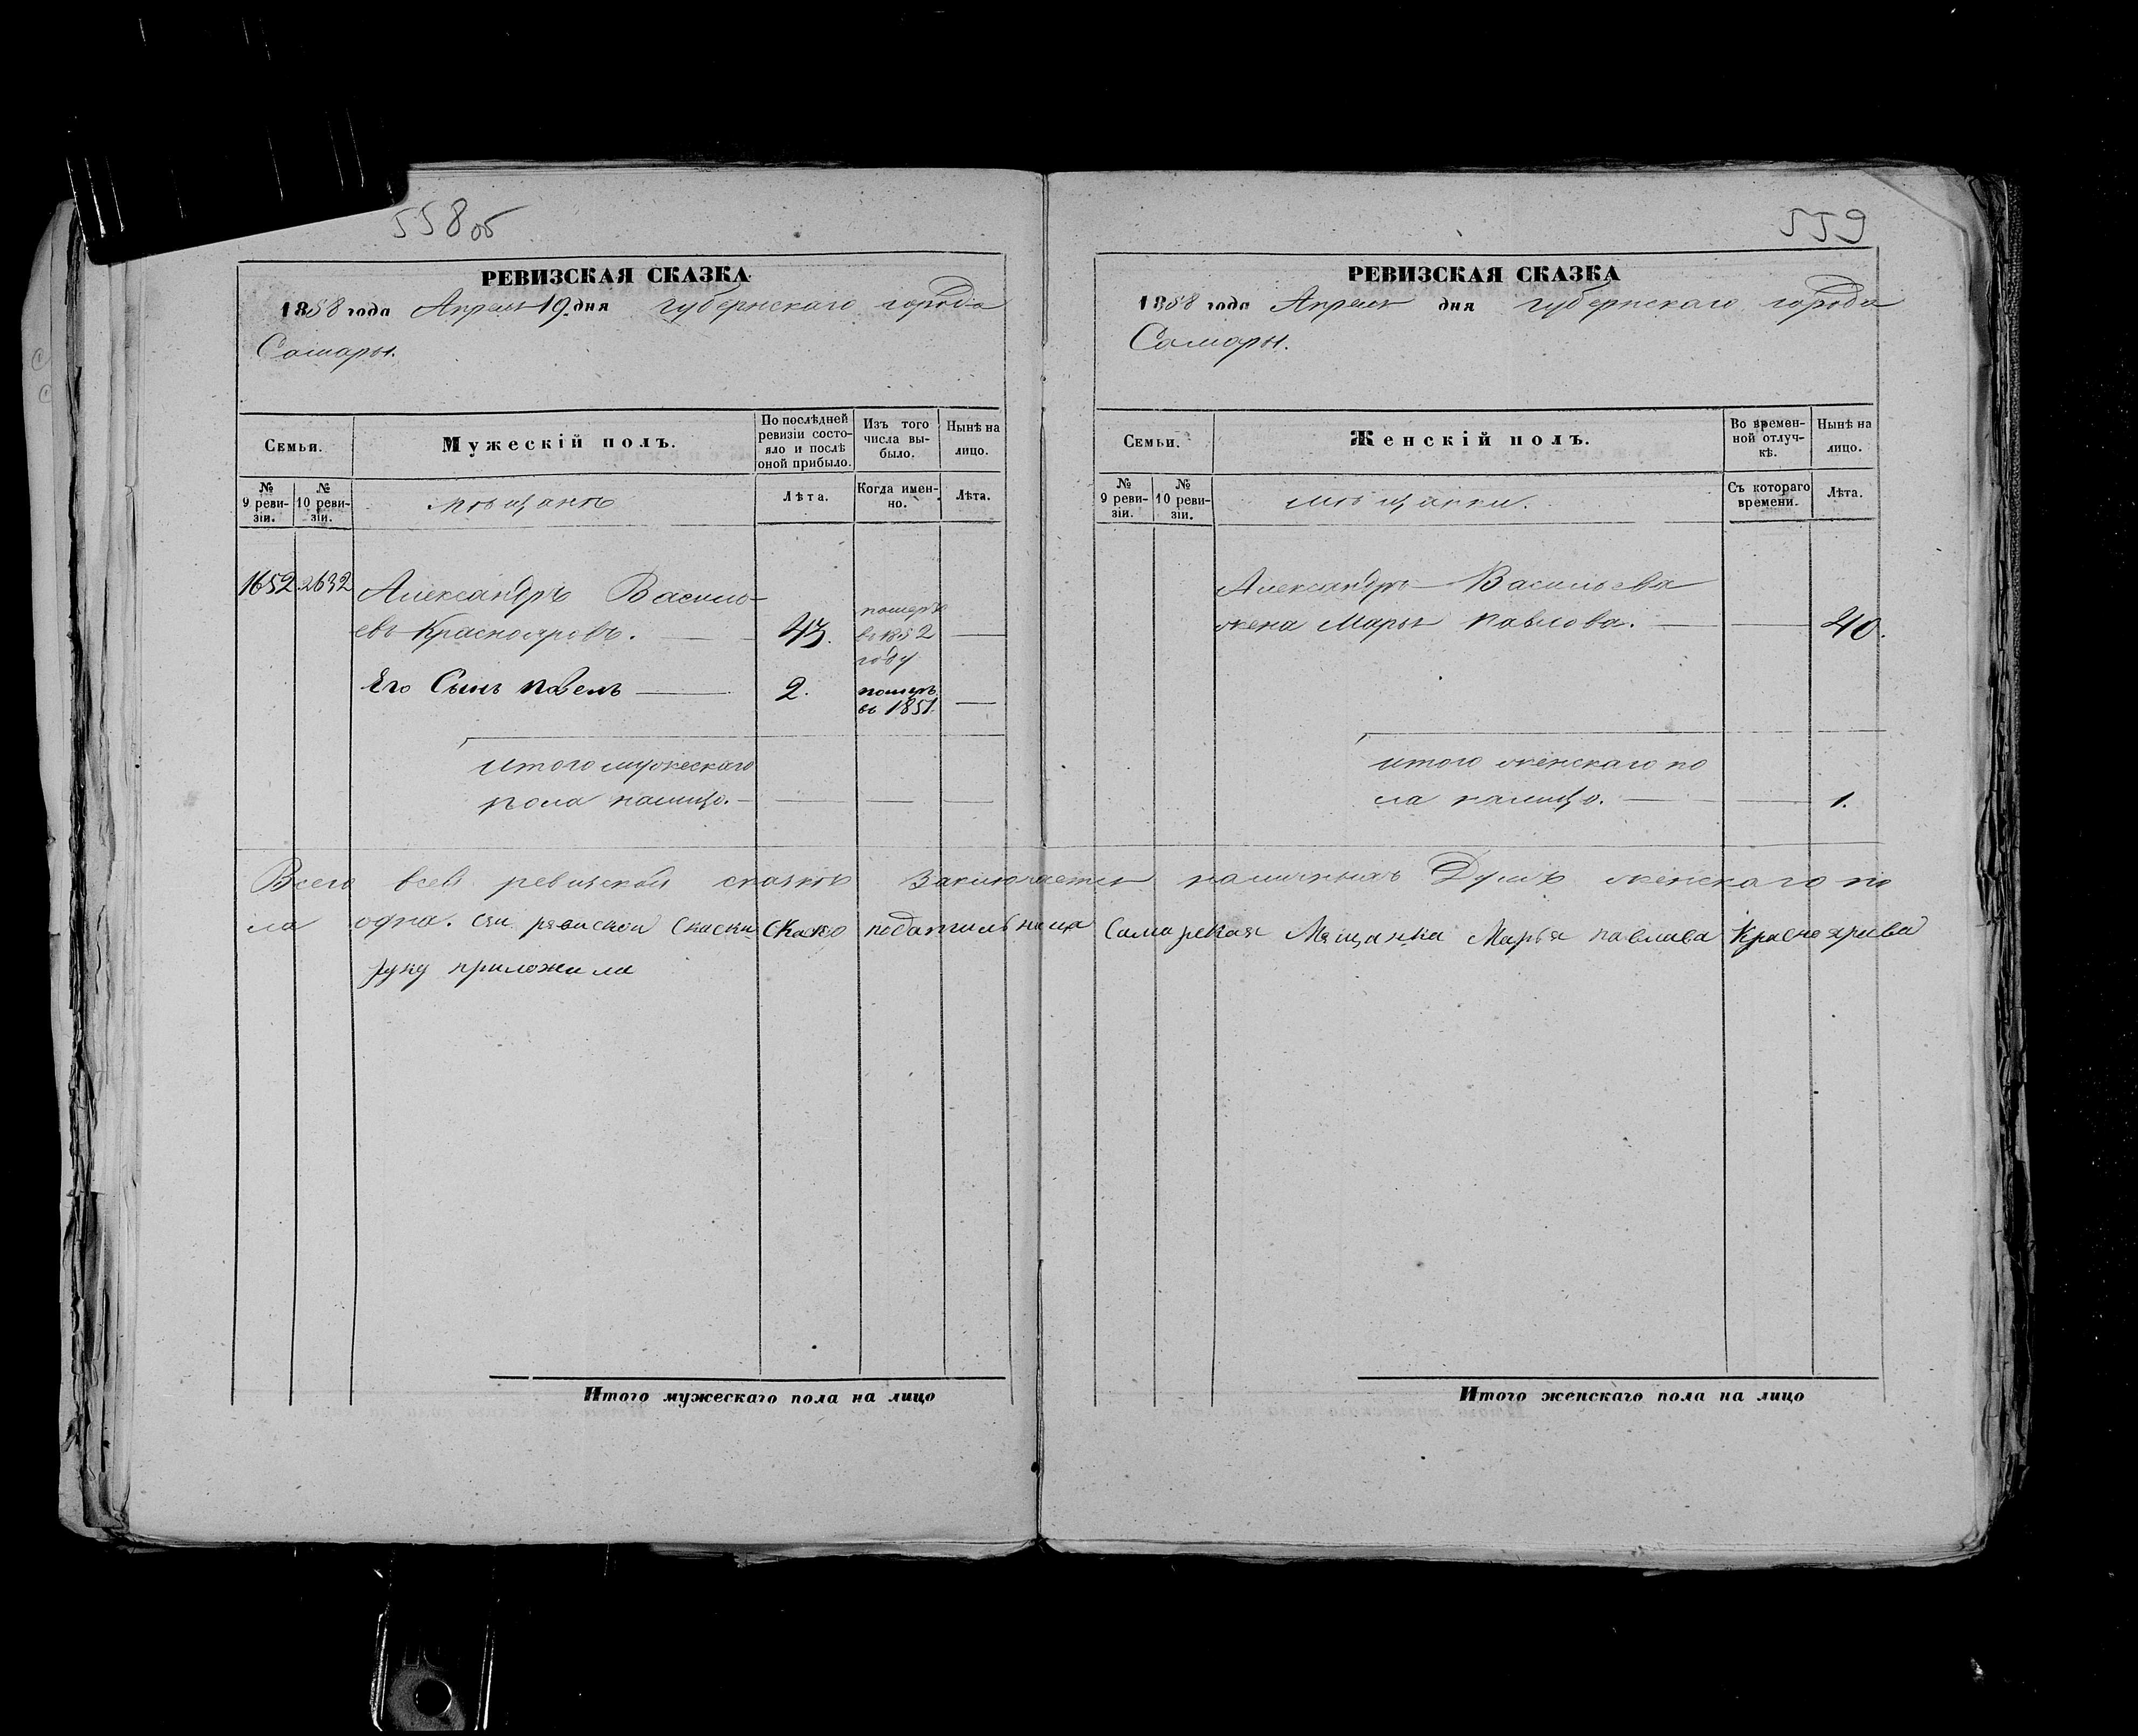 558об
РЕВИЗСКАЯ СКАЗКА
1858 года Апреля 19 дня губернскаго города
Самары.
Семьи.
Мужескій полъ.
По послѣдней
ревизіи состо-
яло и послѣ
оной прибыло.
Изъ того
числа вы-
было.
Нынѣ на
лицо.
№
9 реви-
зіи.
№
10 реви-
зіи.
мѣщанѣ
Лѣта.
Когда имен-
но.
Лѣта.
1652 2632 Александръ Василь-
евъ Краснояровъ. 43. померъ
въ 1852
году
Его Сынъ павелъ 2. померъ
въ 1851.
итого мужескаго
пола налицо.
559
РЕВИЗСКАЯ СКАЗКА
1858 года Апреля дня губернскаго города
Самары.
Семьи.
Женскій полъ.
Во времен-
ной отлуч-
кѣ.
Нынѣ на
лицо.
№
9 реви-
зіи.
№
10 реви-
зіи.
мѣщанки.
Съ котораго
времени.
Лѣта.
Александръ Васильева
жена Марья павлова. 40.
итого женскаго по
ла налицо. 1.
Всего всей ревизской сказкѣ заключается наличныхъ Душъ женскаго по
ла одна. сеи ревискои скаски скаско подательница Самарская Мещанка Марья павлава Красноярава
руку приложила
Итого мужескаго пола на лицо
Итого женскаго пола на лицо